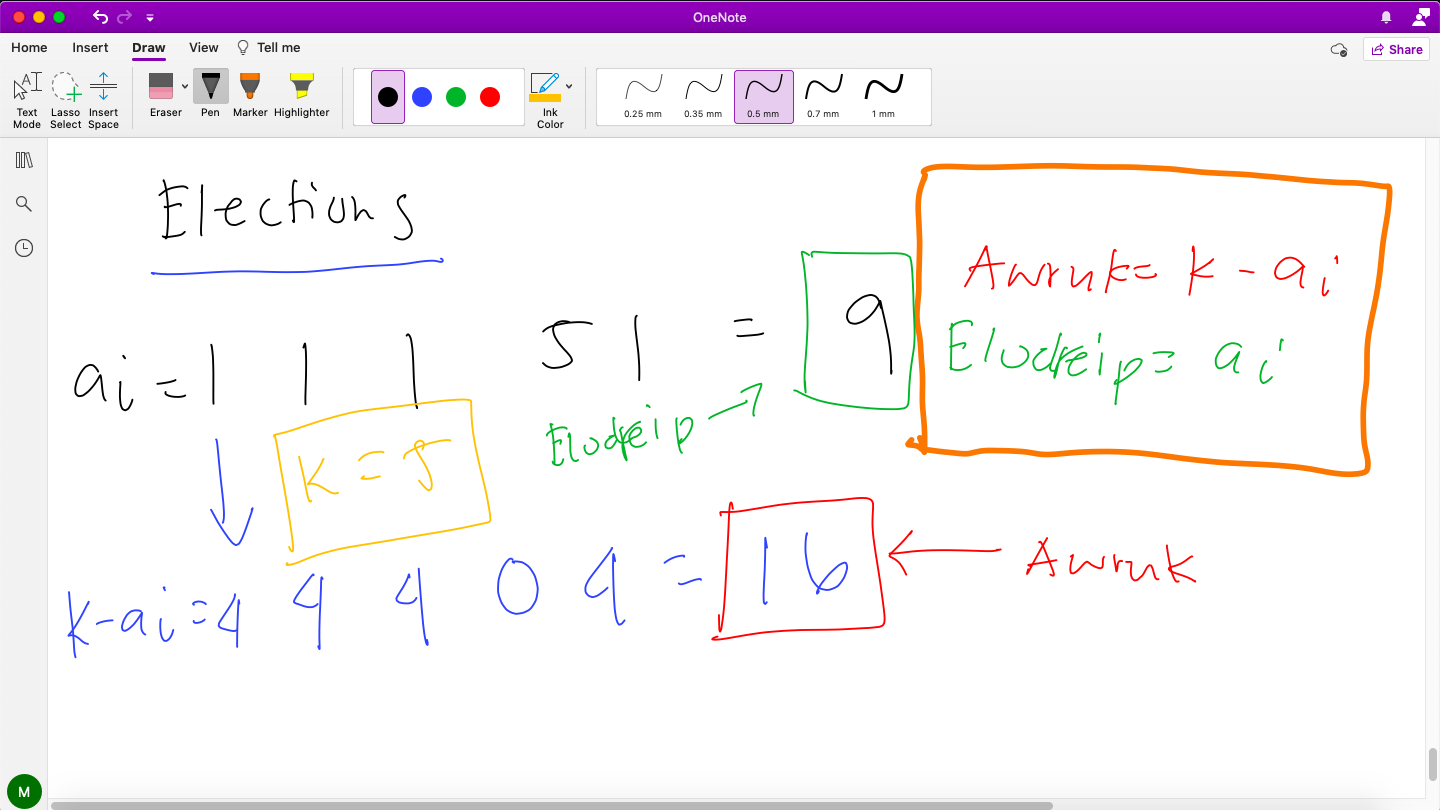 OneNote
Home Insert Draw View Tell me
Share
Text Mode
Lasso Select
Insert Space
Eraser
Pen
Marker
Highlighter
Ink Color
0.25 mm
0.35 mm
0.5 mm
0.7 mm
1 mm
Elections
ai = 1 1 1 5 1 = 9
Elodreip →
Awruk = k - ai
Elodreip = ai
k = 5
k-ai = 4 4 4 0 4 = 16 ← Awruk
M